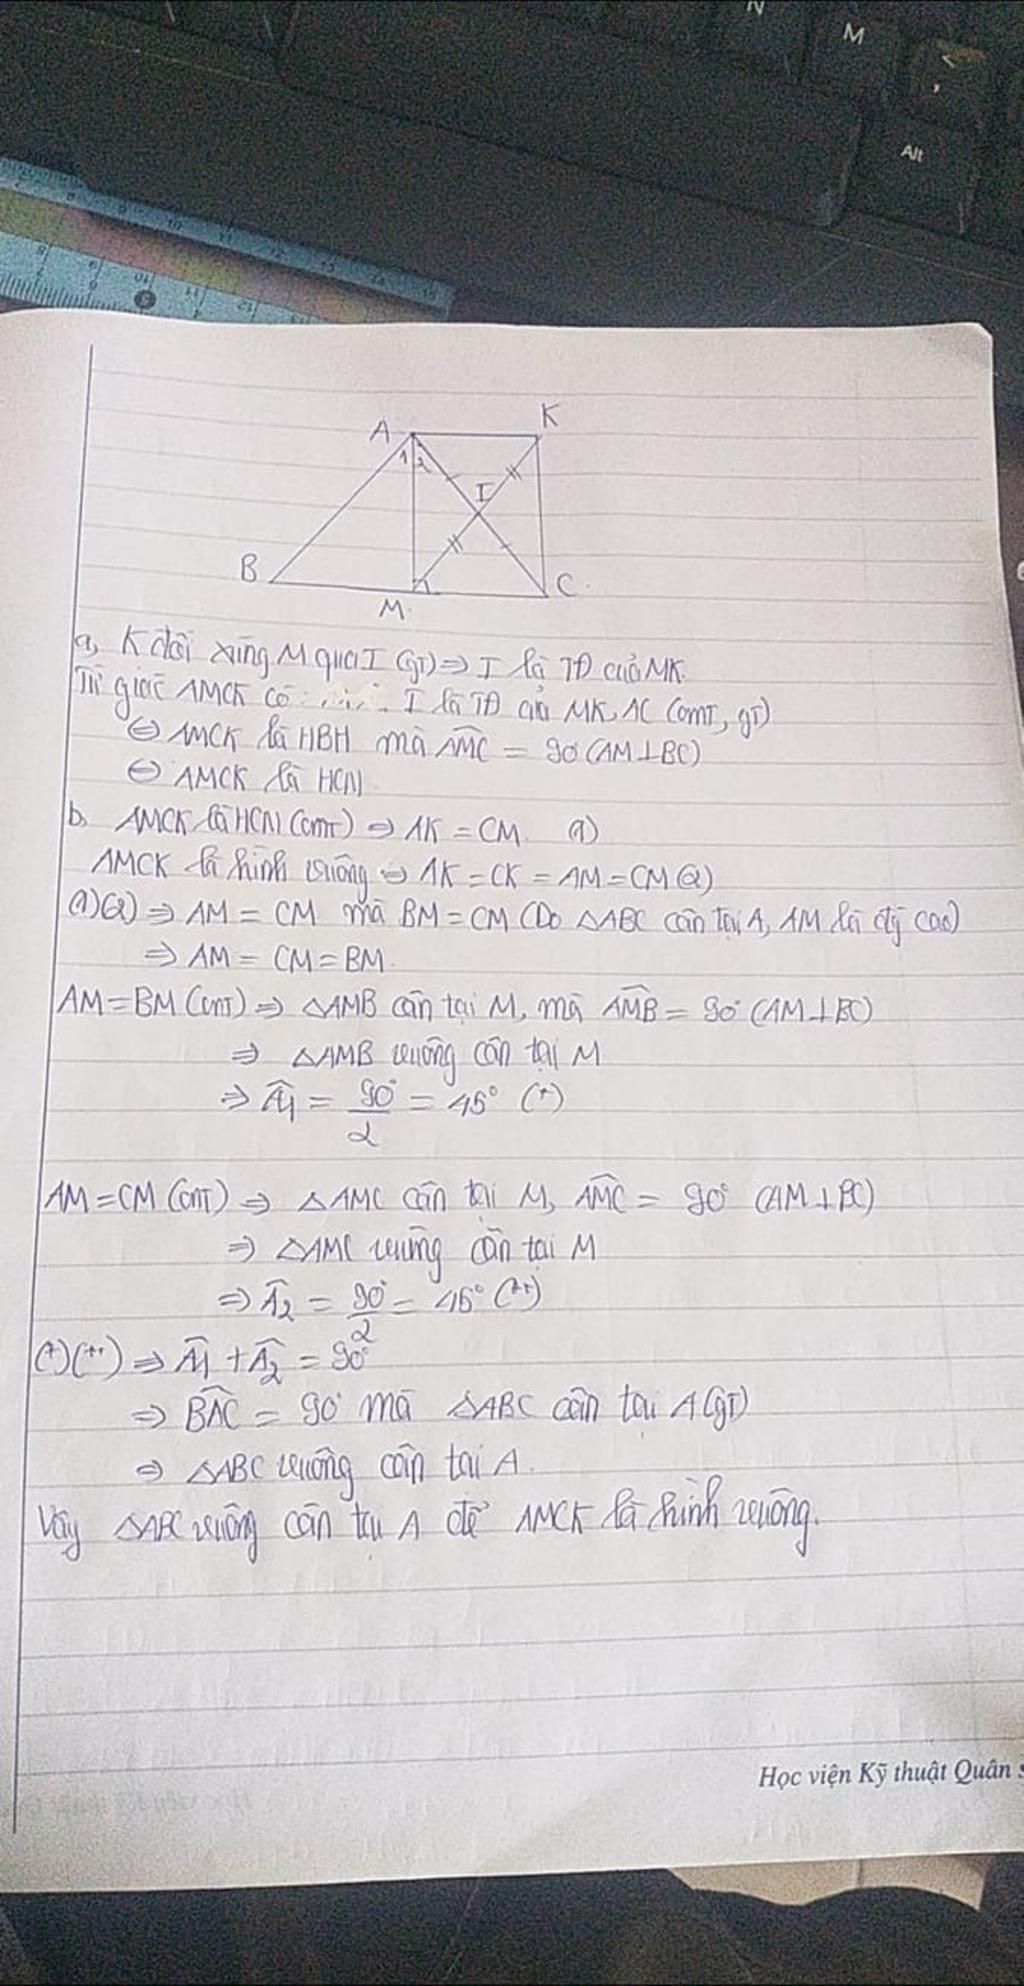 N
M
<
,
Alt
A
K
1
2
I
B
M
C
a, K đối xứng M qua I (gT) ⇒ I là TĐ của MK.
Tứ giác AMCK có I là TĐ của MK, AC (cmT, gT)
⇔ AMCK là HBH mà AMC = 90° (AM⊥BC)
⇔ AMCK là HCN
b. AMCK là HCN (cmT) ⇒ AK = CM. (1)
AMCK là hình vuông ⇔ AK = CK = AM = CM (2)
(1)(2) ⇒ AM = CM mà BM = CM (Do △ABC cân tại A, AM là đg cao)
⇒ AM = CM = BM.
AM = BM (cmT) ⇒ △AMB cân tại M, mà AMB = 90° (AM⊥BC)
⇒ △AMB vuông cân tại M
⇒ A1 = 90°/2 = 45° (*)
AM = CM (cmT) ⇒ △AMC cân tại M, AMC = 90° (AM⊥BC)
⇒ △AMC vuông cân tại M
⇒ A2 = 90°/2 = 45° (**)
(*)(**) ⇒ A1 + A2 = 90°
⇒ BAC = 90° mà △ABC cân tại A (gT)
⇒ △ABC vuông cân tại A.
Vậy △ABC vuông cân tại A để AMCK là hình vuông.
Học viện Kỹ thuật Quân